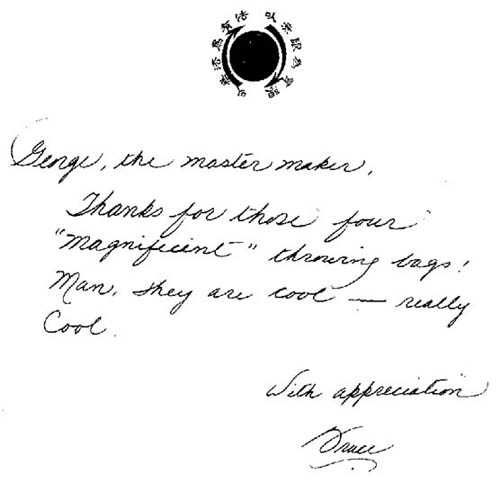 以無法為有法
以無限為有限
George, the master maker,
Thanks for those four
"magnificent" throwing bags!
Man, they are cool — really
Cool.
With appreciation
Bruce